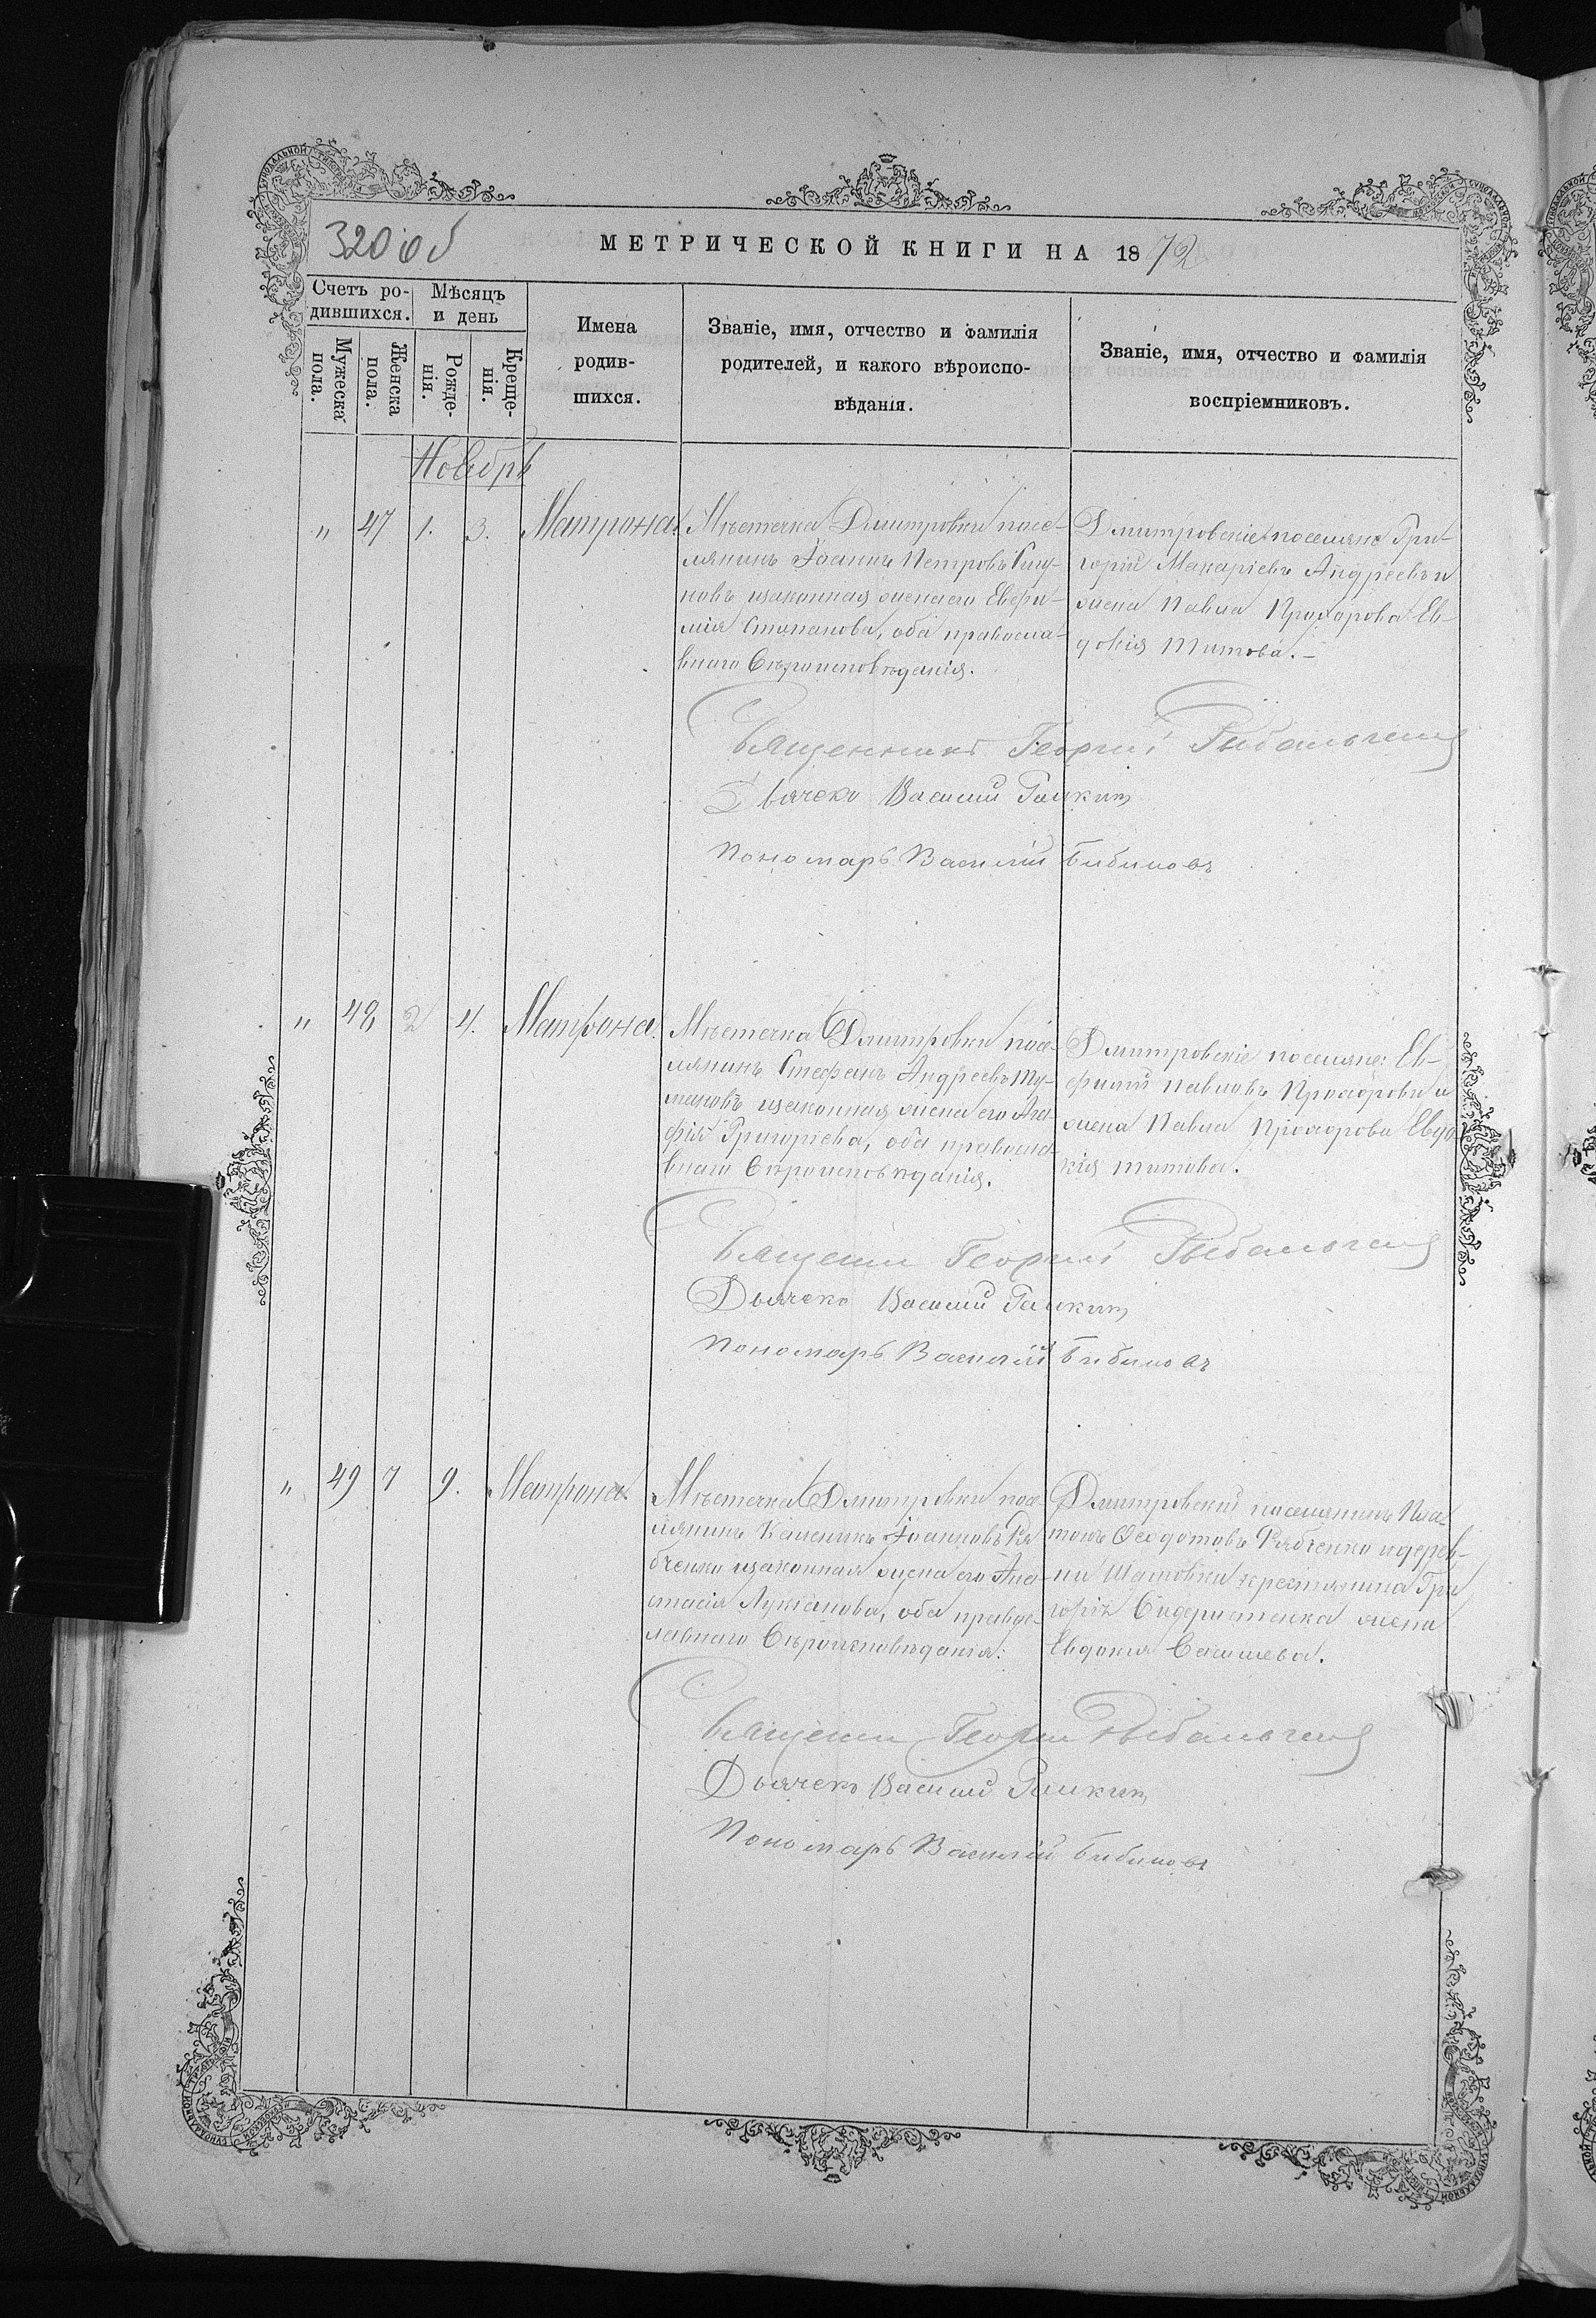 320 об
МЕТРИЧЕСКОЙ КНИГИ НА 1872
Счетъ ро-
дившихся.
Мѣсяцъ
и день
Мужеска
пола.
Женска
пола.
Рожде-
нія.
Креще-
нія.
Имена
родив-
шихся.
Званіе, имя, отчество и фамилія
родителей, и какого вѣроиспо-
вѣданія.
Званіе, имя, отчество и фамилія
воспріемниковъ.
Ноябрь
" 47 1. 3. Матрона.
Мѣстечка Дмитровки посе-
лянинъ Іоаннъ Петровъ
изаконная жена его Евфи-
мія Стапанова, оба правосла-
внаго вѣроисповѣданія.
Дмитровскіе поселяне Гри-
горій Макаріевъ Андреевъ и
жена Павла Прохорова Ев-
докія Титова.-
Священникъ Георгій Рыбальченко
Дьячекъ Василій
Пономарь Василій Бибиковъ
" 48 2 4. Матрона.
Мѣстечка Дмитровки посе-
лянинъ Стефанъ Андреевъ Ту-
маковъ изаконная жена его Ага-
фія Григоріева, оба правосла-
внаго вѣроисповѣданія.
Дмитровскіе поселяне: Ев-
фимій Павловъ Прохоровъ и
жена Павла Прохорова Евдо-
кія Титова.
Священни Георгій Рыбальченко
Дьячекъ Василій
Пономарь Василій Бибиковъ
" 49 7 9. Матрона.
Мѣстечка Дмитровки посе
лянинъ Каленикъ Іоанновъ Ря
бченко изаконная жена его Ана-
стасія Лукіанова, оба правос-
лавнаго вѣроисповѣданія.
Дмитровскій поселянинъ Пла-
тонъ Ѳеодотовъ Рябченко идерев-
ни крестьянина Гри
горія жена
Евдокія Савишева.
Священни Георгій Рыбальченко
Дьячекъ Василій
Пономарь Василій Бибиковъ